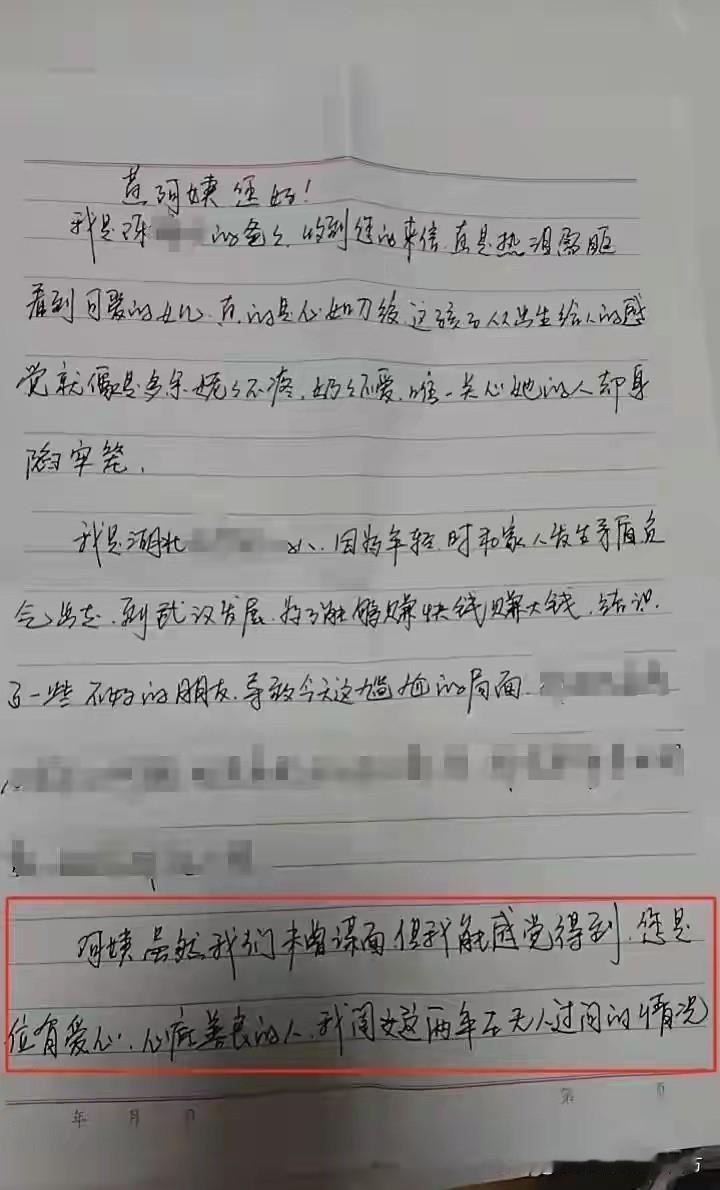 黄阿姨您好!
我是陈 的爸爸,收到您的来信,真是热泪盈眶
看到可爱的女儿,真的是心如刀绞,这孩子从出生给人的感
觉就像是多余,姥姥不疼,奶奶不爱,唯一关心她的人却身
陷牢笼,
我是湖北 人,因为年轻时和家人发生矛盾负
气出走,到武汉发展,为了能够赚快钱,赚大钱,结识
了一些不好的朋友,导致今天这尴尬的局面,
阿姨虽然我们未曾谋面但我能感觉得到,您是
位有爱心,心底善良的人,我闺女这两年在无人过问的情况
年 月 日
第 页